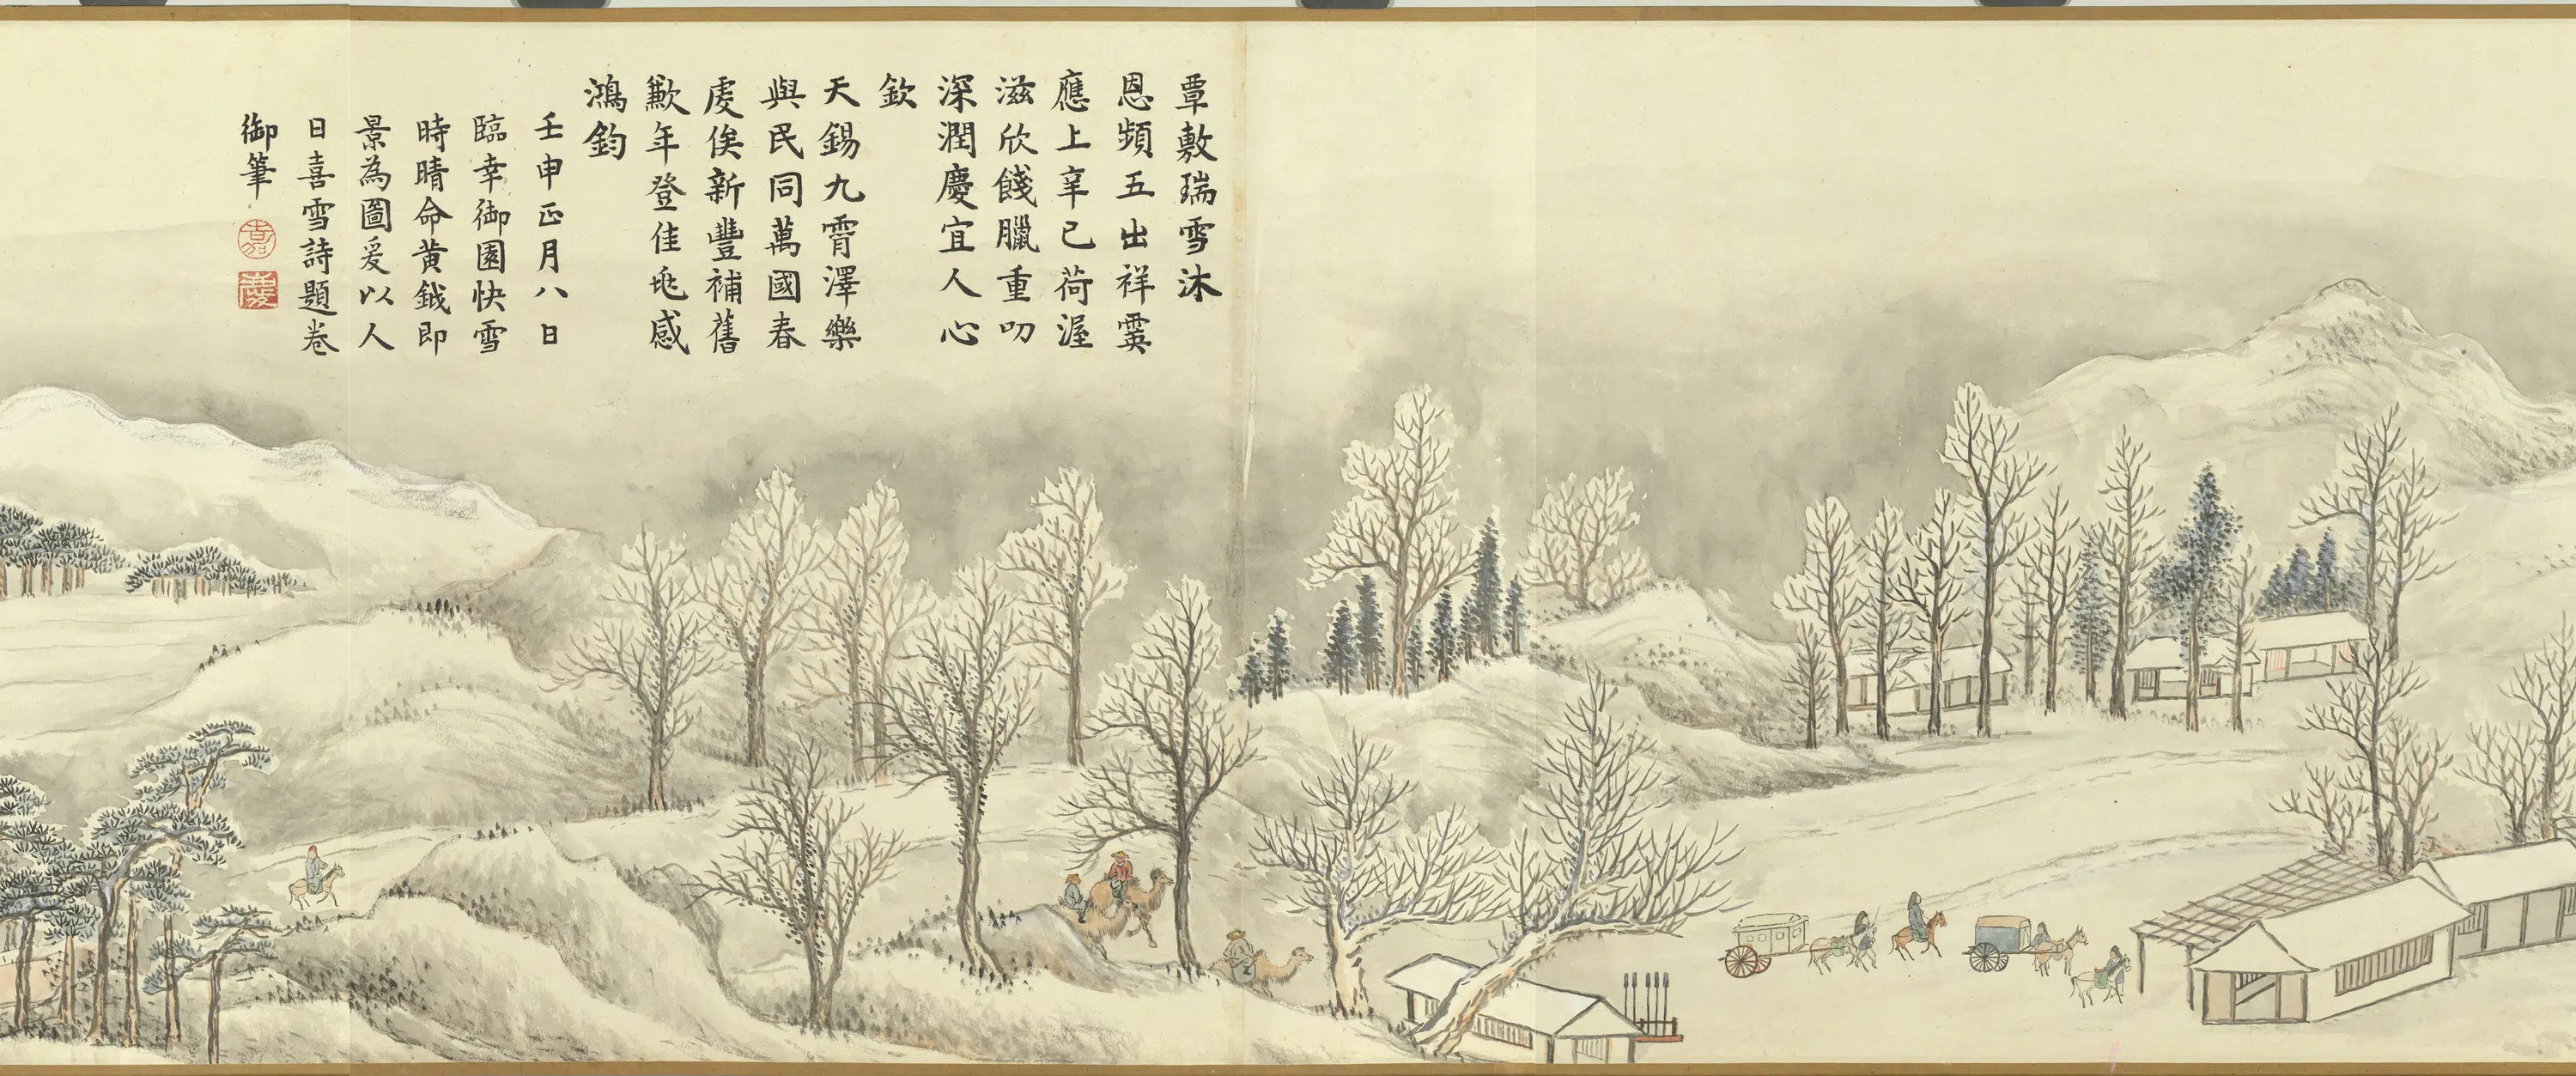 覃敷瑞雪沐
恩頻五出祥霙
應上辛已荷渥
滋欣餞臘重叨
深潤慶宜人心
欽
天錫九霄澤樂
與民同萬國春
虔俟新豐補舊
歉年登佳兆感
鴻鈞
壬申正月八日
臨幸御園快雪
時晴命黃鉞即
景為圖爰以人
日喜雪詩題卷
御筆
嘉
慶